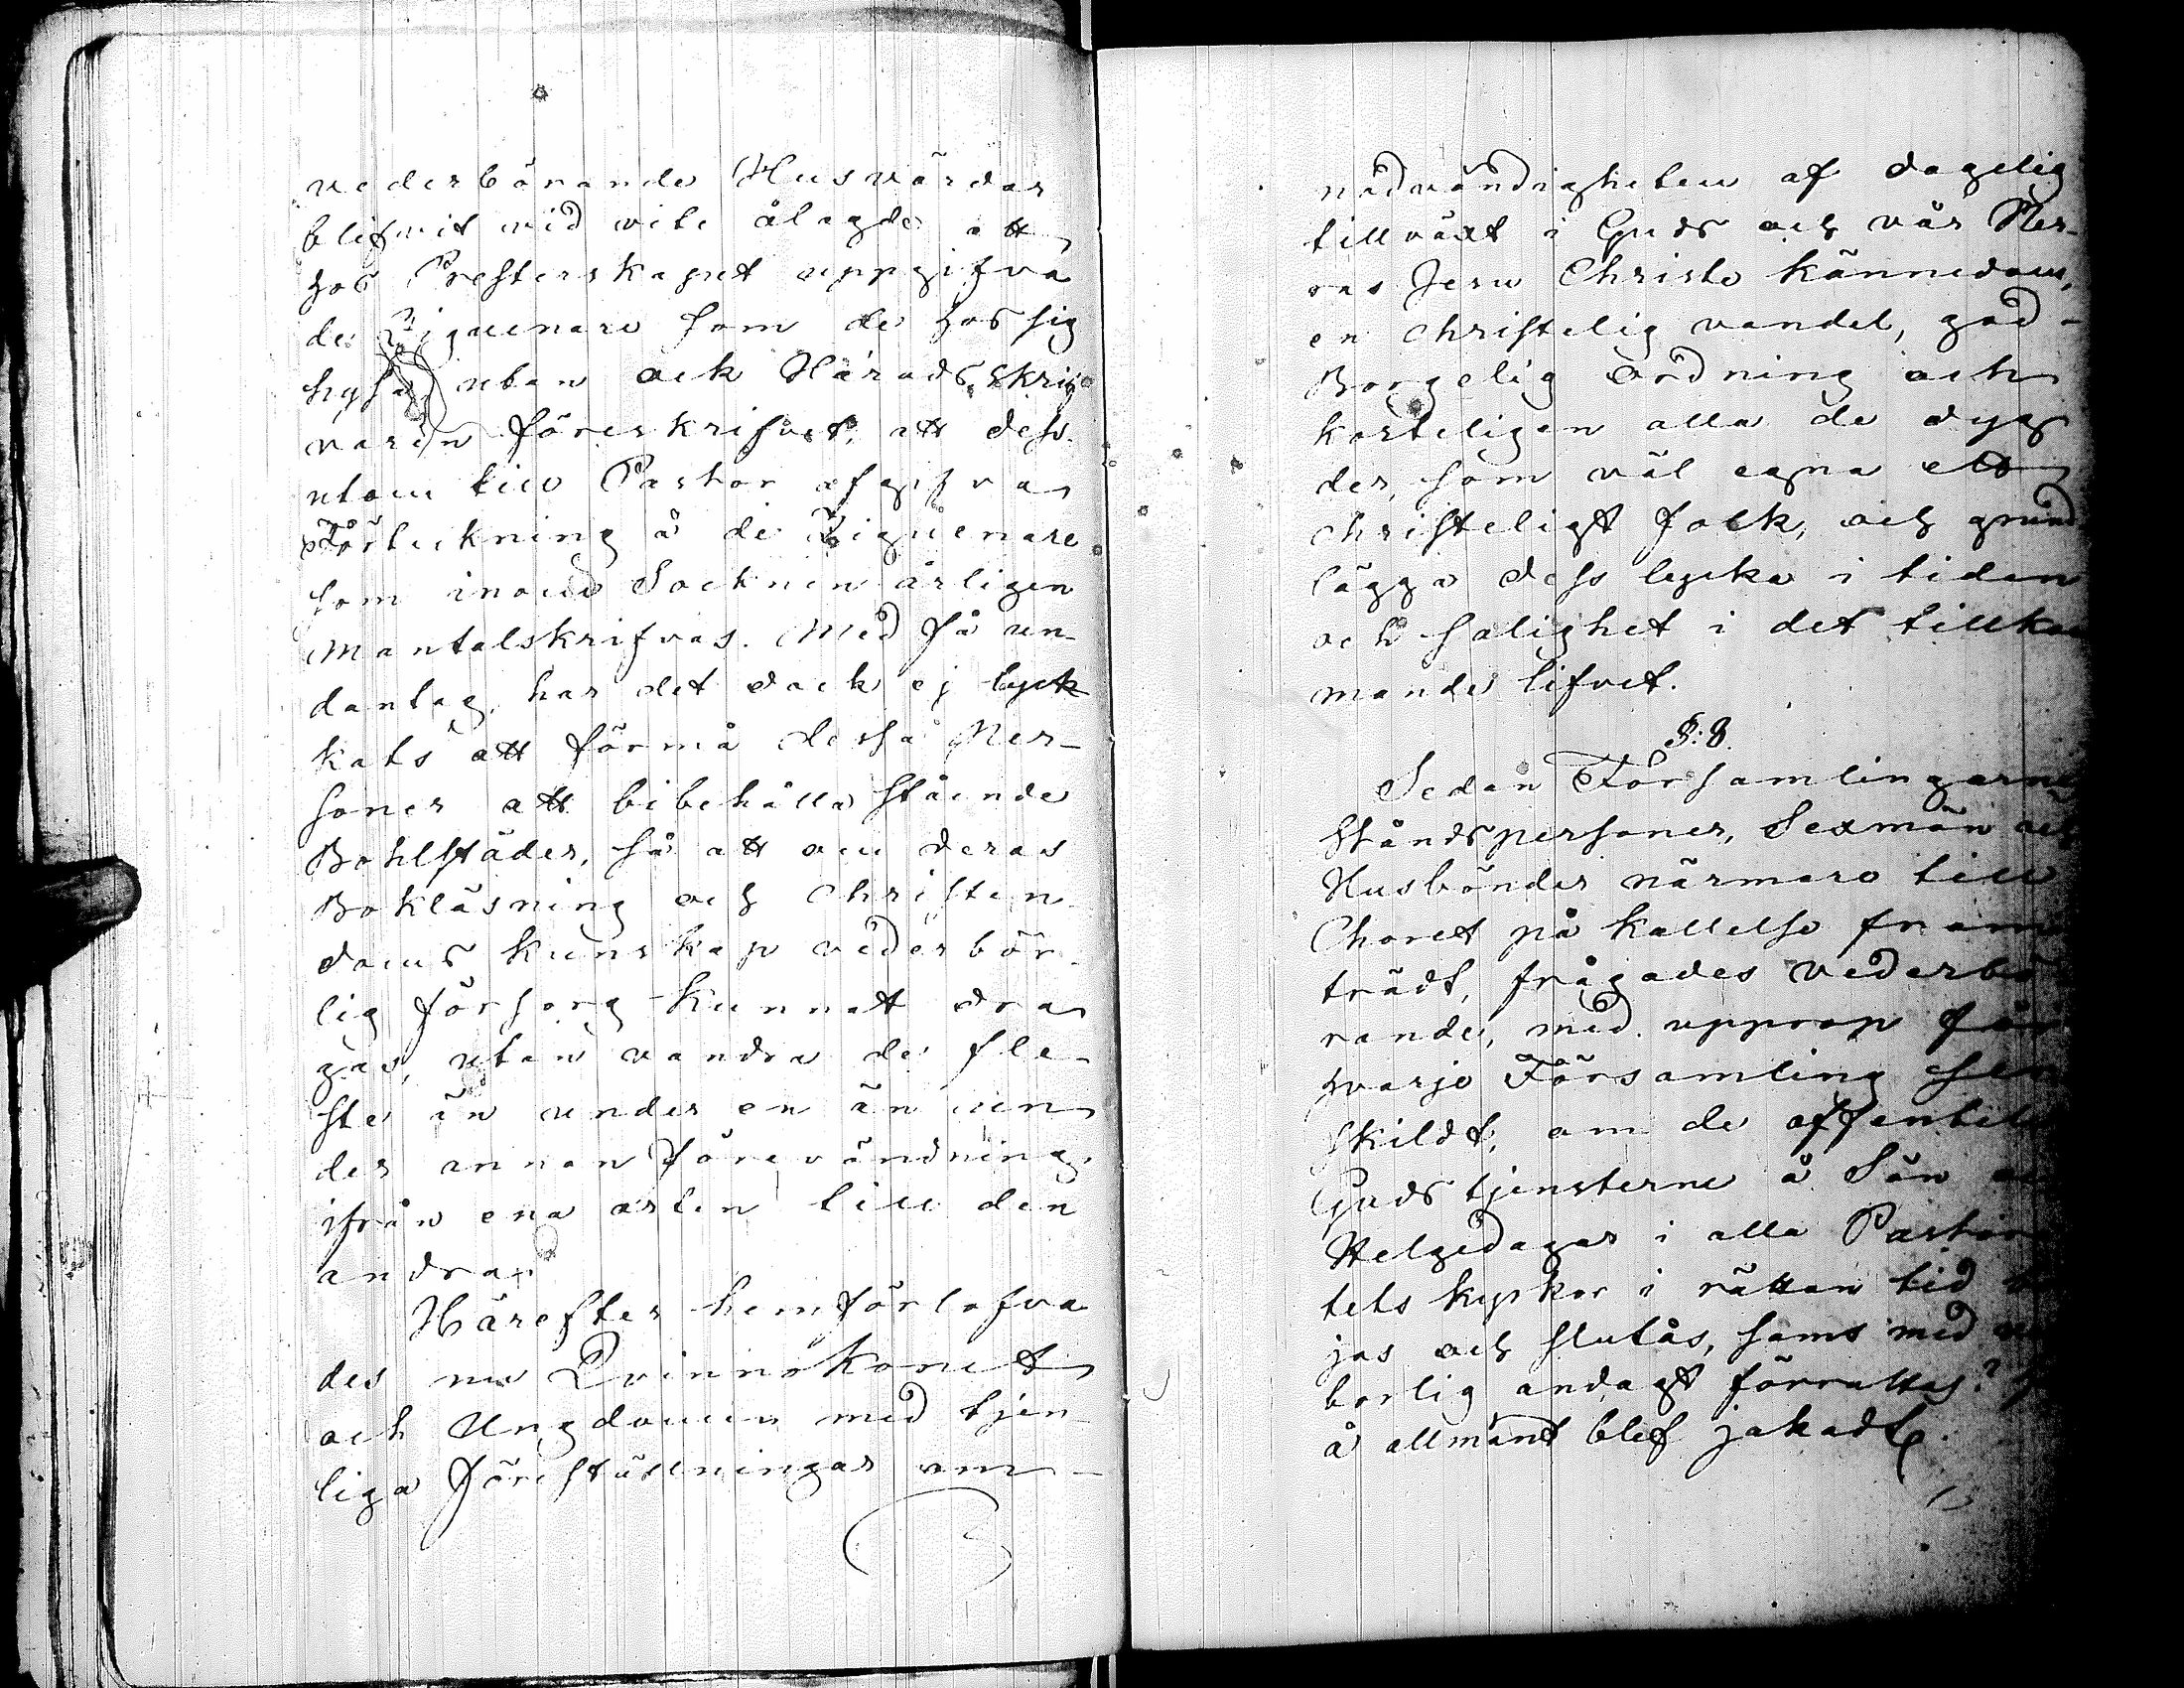 vederbörande Husvärdar
blifvit vid vite ålagde att
hos Presterskapet uppgifva
de Ziguenare som de hos sig
hysa, utan ock Häradsskrif
varen föreskrifvet, att dess
utom till Pastor afgifva
Förteckning å de Ziguenare
som inom Socknen årligen
Mantalskrifvas. Med få un-
dantag har det dock ej lyck
kats att förmå dessa Per-
soner att bibehålla stående
Bohlstäder, så att om deras
Bokläsning och Christen
doms kunskap vederbör-
lig försorg kunnat dra
gas, utan vandra de fle-
ste än under en än un
der annan förevändning,
ifrån ena orten till den
andra.
Härefter hemförlofva
des nu Qvinnokönet
och Ungdomen med tjen
liga föreställningar om
nödvändigheten af dagelig
tillväxt i Guds och vår Her-
ras Jesu Christo kännedom,
en christelig vandel, god
Borgelig ordning och
korteligen alla de dyg
der, som väl egna ett
christeligt folk, och grund
lägga dess lycka i tiden
och salighet i det tillkom
mande lifvet.
§: 8.
Sedan Församlingarne
Ståndspersoner, Sexmän och
Husbönder närmare till
Choret på kallelse fram
trädt, frågades vederbö
rande, med upprop för
hvarje Församling sär
skildt, om de offentel
Gudstjensterne å Sön och
Helgedagar i alla Pastora
tets kyrkor i rättan tid b
jas och slutas, samt med v
borlig andagt förrättas?
å allmänt blef jakadt.